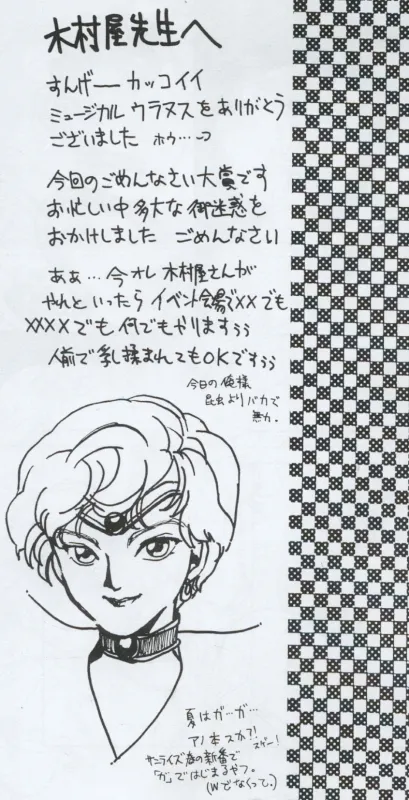 木村屋先生へ
すんげー カッコイイ
ミュージカル ウラヌスをありがとう
ございました ホゥ…っ
今回のごめんなさい大賞です
お忙しい中多大な御迷惑を
おかけしました ごめんなさい
あぁ…今オレ 木村屋さんが
やれといったら イベント会場で××でも
××××でも何でもやりますぅぅ
人前で乳揉まれてもOKですぅぅ
今日の俺様
昆虫よりバカで
無力。
夏はガ…ガ…
アノ本スか?!
スゲー!
サンライズ春の新番で
「ガ」ではじまるやつ。
(Wでなくって。)